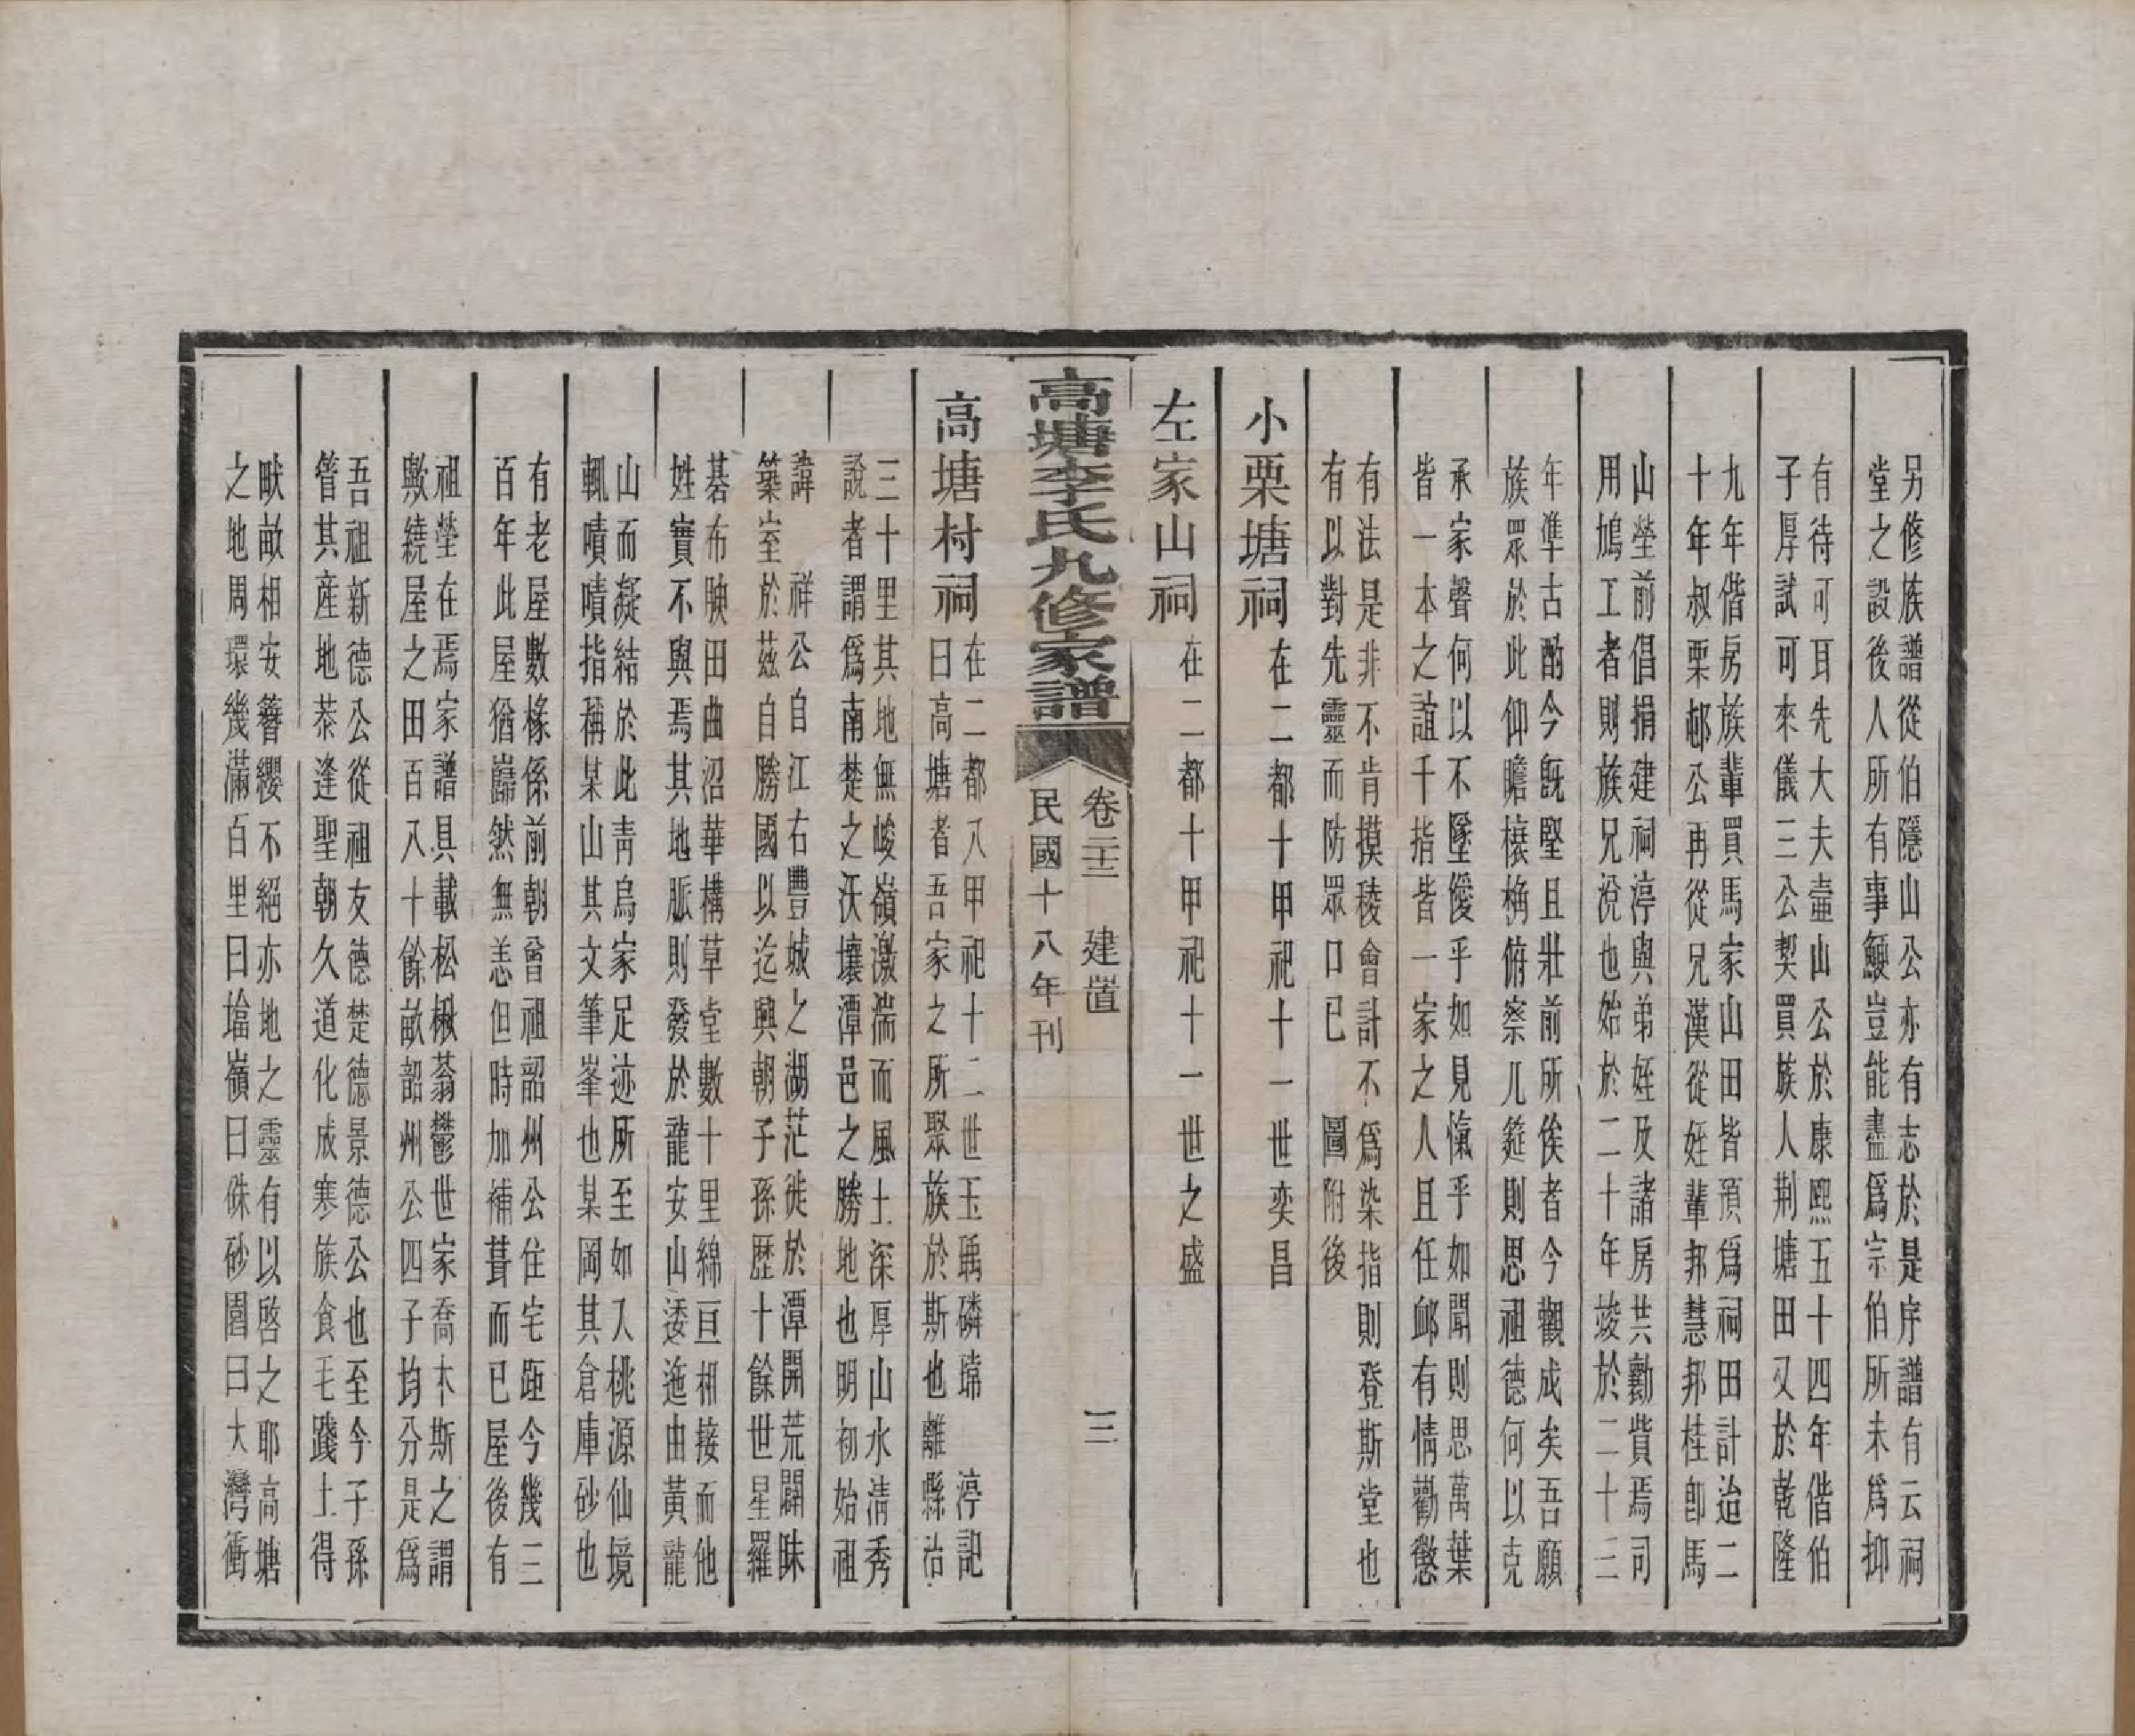 另修族譜從伯隱山公亦有志於是序譜有云祠
堂之設後人所有事鯁豈能盡爲宗伯所未爲抑
有待可耳先大夫壺山公於康熙五十四年偕伯
子厚試可來儀三公契買族人荆塘田又於乾隆
九年偕房族輩買馬家山田皆預爲祠田計迨二
十年叔栗邨公再從兄漢從姪輩邦慧邦桂卽馬
山塋前倡捐建祠渟與弟姪及諸房共勷貲焉司
用鳩工者則族兄浼也始於二十年竣於二十三
年準古酌今旣堅且壯前所俟者今觀成矣吾願
族眾於此仰瞻榱桷俯察几筵則思祖德何以克
承家聲何以不墜僾乎如見愾乎如聞則思萬葉
皆一本之誼千指皆一家之人且任邮有情勸懲
有法是非不肯摸稜會計不爲染指則登斯堂也
有以對先靈而防眾口已　圖附後
小栗塘祠在二都十甲祀十一世奕昌
左家山祠在二都十甲祀十一世之盛
高塘李氏九修家譜　卷二十二　建置　三　民國十八年刊
高塘村祠在二都八甲祀十二世玉瑀磷瑺　渟記
曰高塘者吾家之所聚族於斯也離縣治
三十里其地無峻嶺激湍而風土深厚山水淸秀
說者謂爲南楚之沃壤潭邑之勝地也明初始祖
諱　祥公自江右豐城之湖茫徙於潭開荒闢昧
築室於茲自勝國以迄興朝子孫歷十餘世星羅
碁布腴田曲沼華構草堂數十里綿亘相接而他
姓實不與焉其地脈則發於龍安山逶迤由黃龍
山而凝結於此靑烏家足迹所至如入桃源仙境
輒嘖嘖指稱某山其文筆峯也某岡其倉庫砂也
有老屋數椽係前朝曾祖韶州公住宅距今幾三
百年此屋猶巋然無恙但時加補葺而已屋後有
祖塋在焉家譜具載松楸蓊鬱世家喬木斯之謂
歟繞屋之田百八十餘畝韶州公四子均分是爲
吾祖新德公從祖友德楚德景德公也至今子孫
管其產地恭逢聖朝久道化成寒族食毛踐土得
畎畝相安簪纓不絕亦地之靈有以啓之耶高塘
之地周環幾滿百里曰塩嶺曰硃砂園曰大灣衝